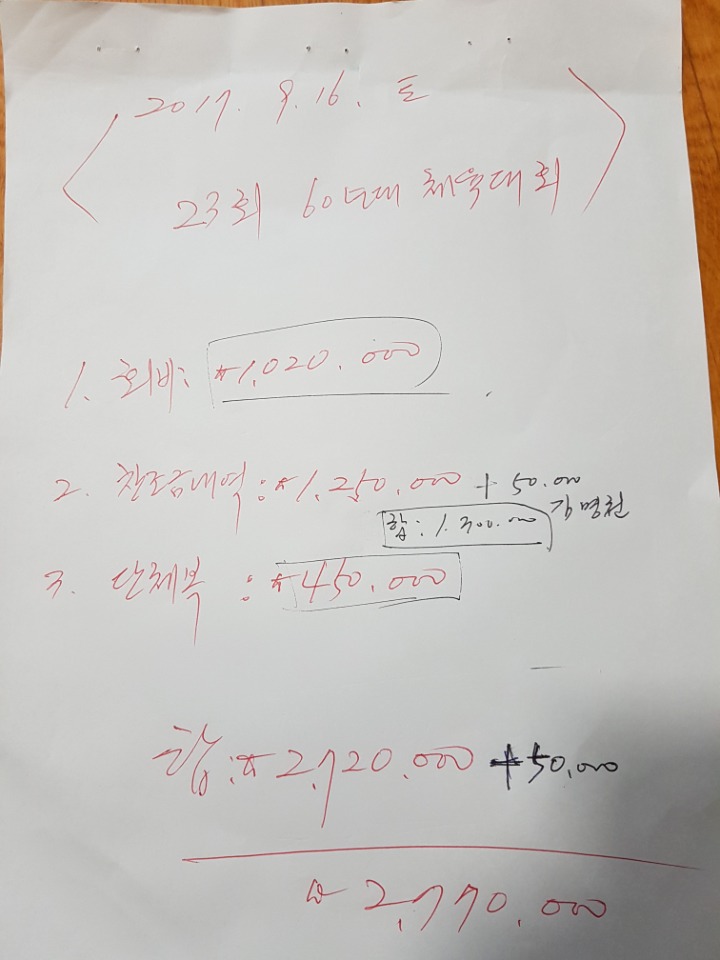 2017. 9. 16. 토
23회 60년대 체육대회
1. 회비: ₩1,020.000
2. 찬조금내역: ₩1.250.000 + 50.000
합: 1.300.000 김명천
3. 단체복 : ₩450.000
합: ₩2,720.000 +50,000
₩2,770.000